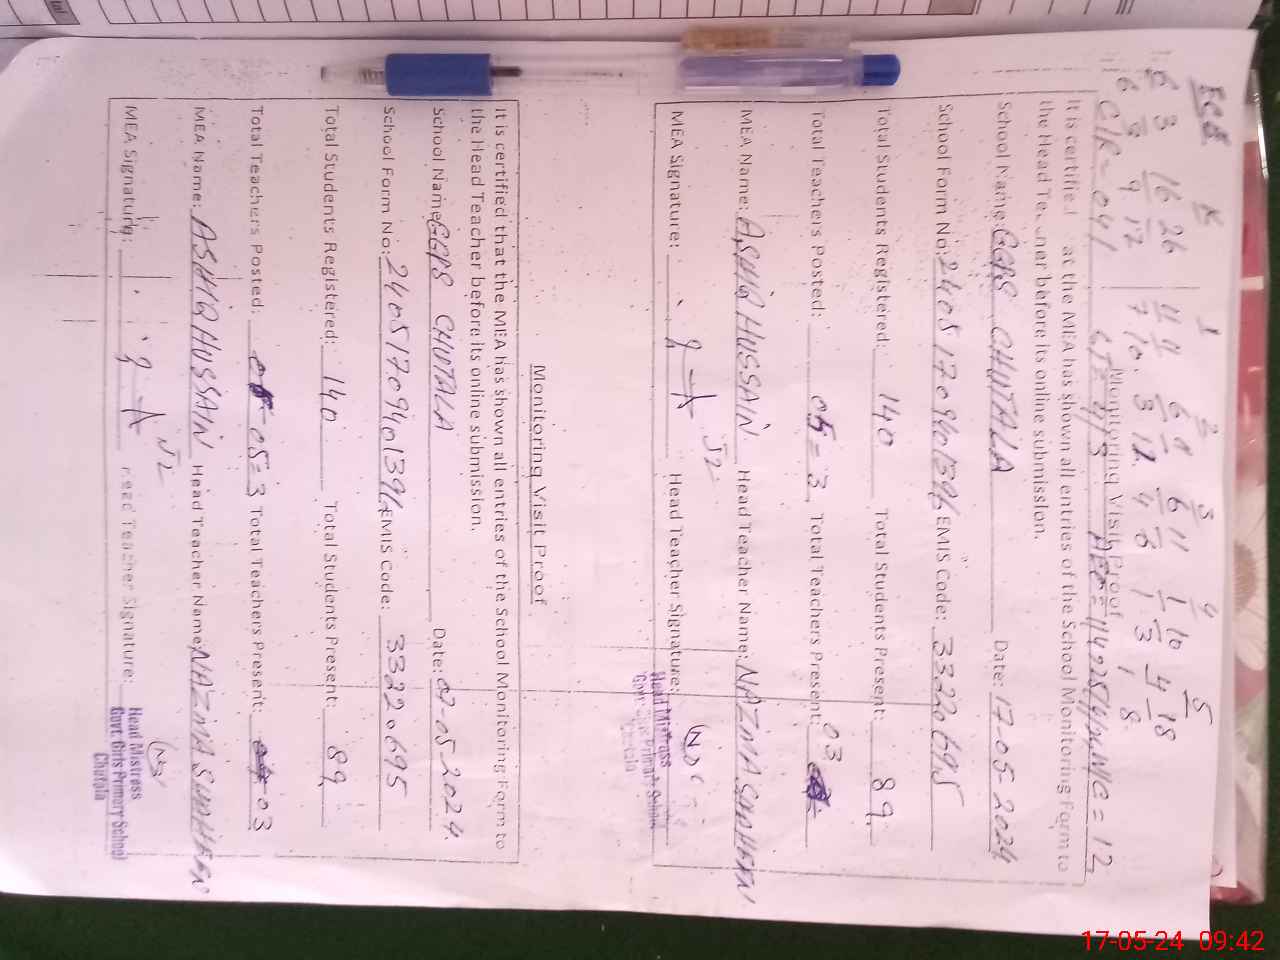 ECE K 1 2 3 4 5
6 3 16 26 4 9 6 8 6 11 1 10 4 18
6 9 9 12 7 10 3 12 4 6 1 3 1 8
C/R-041
Monitoring Visit Proof
It is certified at the MEA has shown all entries of the School Monitoring Form to
the Head Te ner before its online submission.
School Name: GGPS CHUTALA Date: 17-05-2024
School Form No: 24051709401396 EMIS Code: 33220695
Total Students Registered: 140 Total Students Present: 89
Total Teachers Posted: 05=3 Total Teachers Present: 03
MEA Name: ASHIQ HUSSAIN Head Teacher Name: NAZMA SHAHEEN
MEA Signature: Head Teacher Signature:
Head Mistress
Govt. Girls Primary School
Chutala
Monitoring Visit Proof
It is certified that the MEA has shown all entries of the School Monitoring Form to
the Head Teacher before its online submission.
School Name GGPS CHUTALA Date: 07-05-2024.
School Form No: 24051709401396 EMIS Code: 33220695
Total Students Registered: 140 Total Students Present: 89
Total Teachers Posted: 05=3 Total Teachers Present: 03
MEA Name: ASHIQ HUSSAIN Head Teacher Name: NAZMA SHAHEEN
MEA Signature: Head Teacher Signature:
Head Mistress
Govt. Girls Primary School
Chutala
17-05-24 09:42